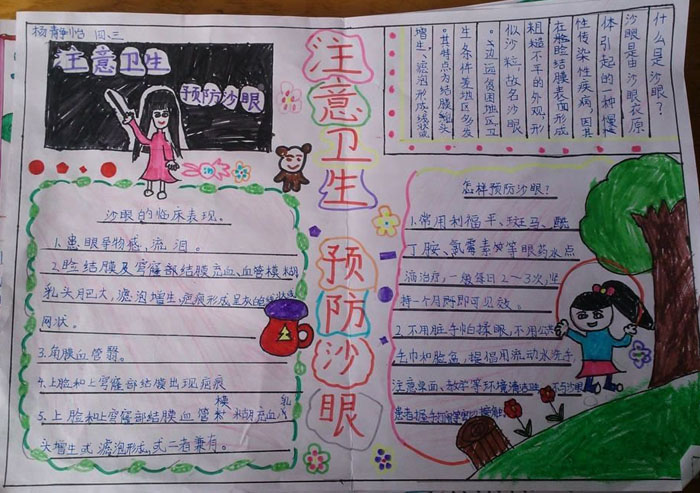 杨静怡 四、三
注意卫生
预防沙眼
注意卫生 预防沙眼
什么是沙眼?
沙眼是由沙眼衣原
体引起的一种慢
性传染性疾病,因其
在睑结膜表面形成
粗糙不平的外观,形
似沙粒,故名沙眼
边远贫困地区卫
生条件差地区多发
其特点为结膜
增生,滤泡形成
沙眼的临床表现。
1.患眼异物感,流泪。
2.睑结膜及穹窿部结膜充血、血管模糊
乳头肥大,滤泡增生,疤痕形成呈灰白
网状。
3.角膜血管翳。
4.上脸和上穹窿部结膜出现疤痕
5.上脸和上穹窿部结膜血管模糊充血乳
头增生或滤泡形成,或二者兼有。
怎样预防沙眼?
1.常用利福平、斑马、酰
丁胺、氯霉素等眼药水点
滴治疗,一般每日2~3次,坚
持一个月即可见效。
2.不用脏手怕揉眼,不用公共
毛巾和脸盆,提倡用流动水洗手
注意桌面、教学等环境清洁 不与沙眼
患者握手打闹等密切接触